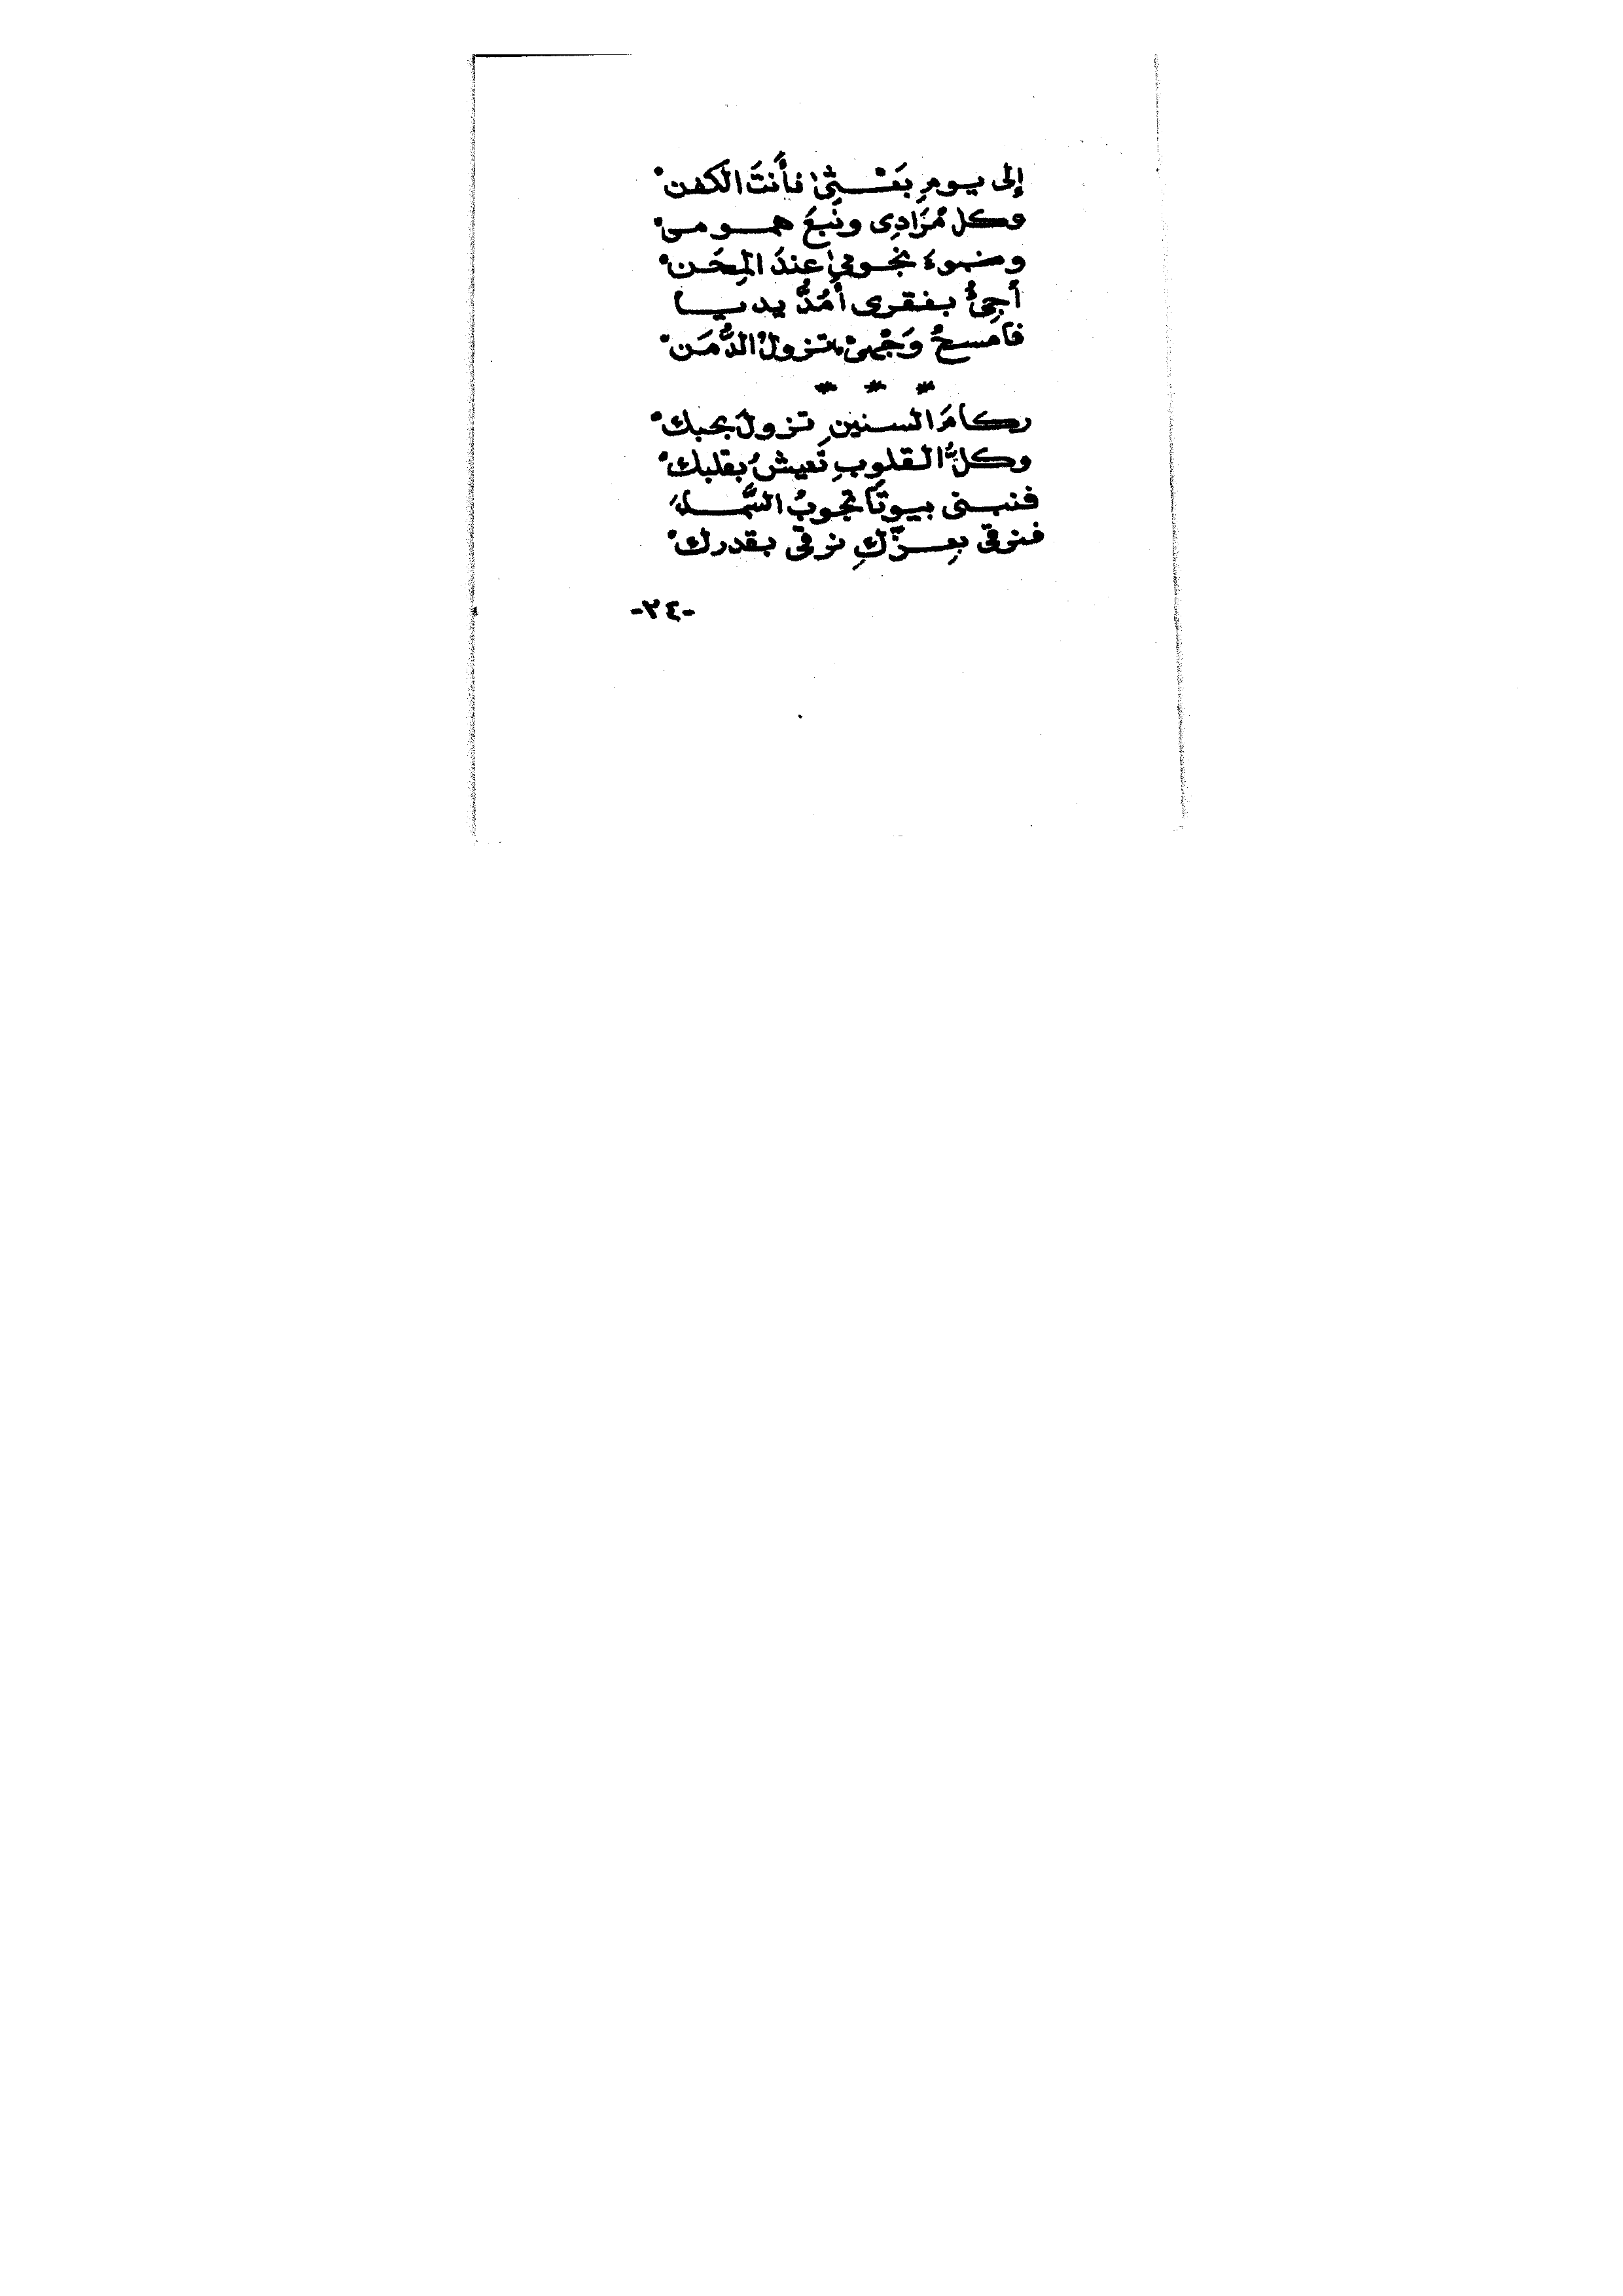 إلى يومِ بَعْثِى فأَنتَ الكفنْ
وكل مُرَادِى ونَبعَ همومىْ
وضوءَ نجومِى عندَ المِحَنْ
أجِئُ بفقرى أمُدُّ يديا
فامسحُ وَجْهِىْ، تزولْ الدُّمَنْ
* * *
ركامَ السنينِ تزولَ بحبكْ
وكلُّ القلوبِ تَعيشُ بقلبكْ
فنبنى بيوتًا تجوبُ السَّماءَ
فنرقى بِعزِّكِ نرقى بقدركْ
-٢٤-